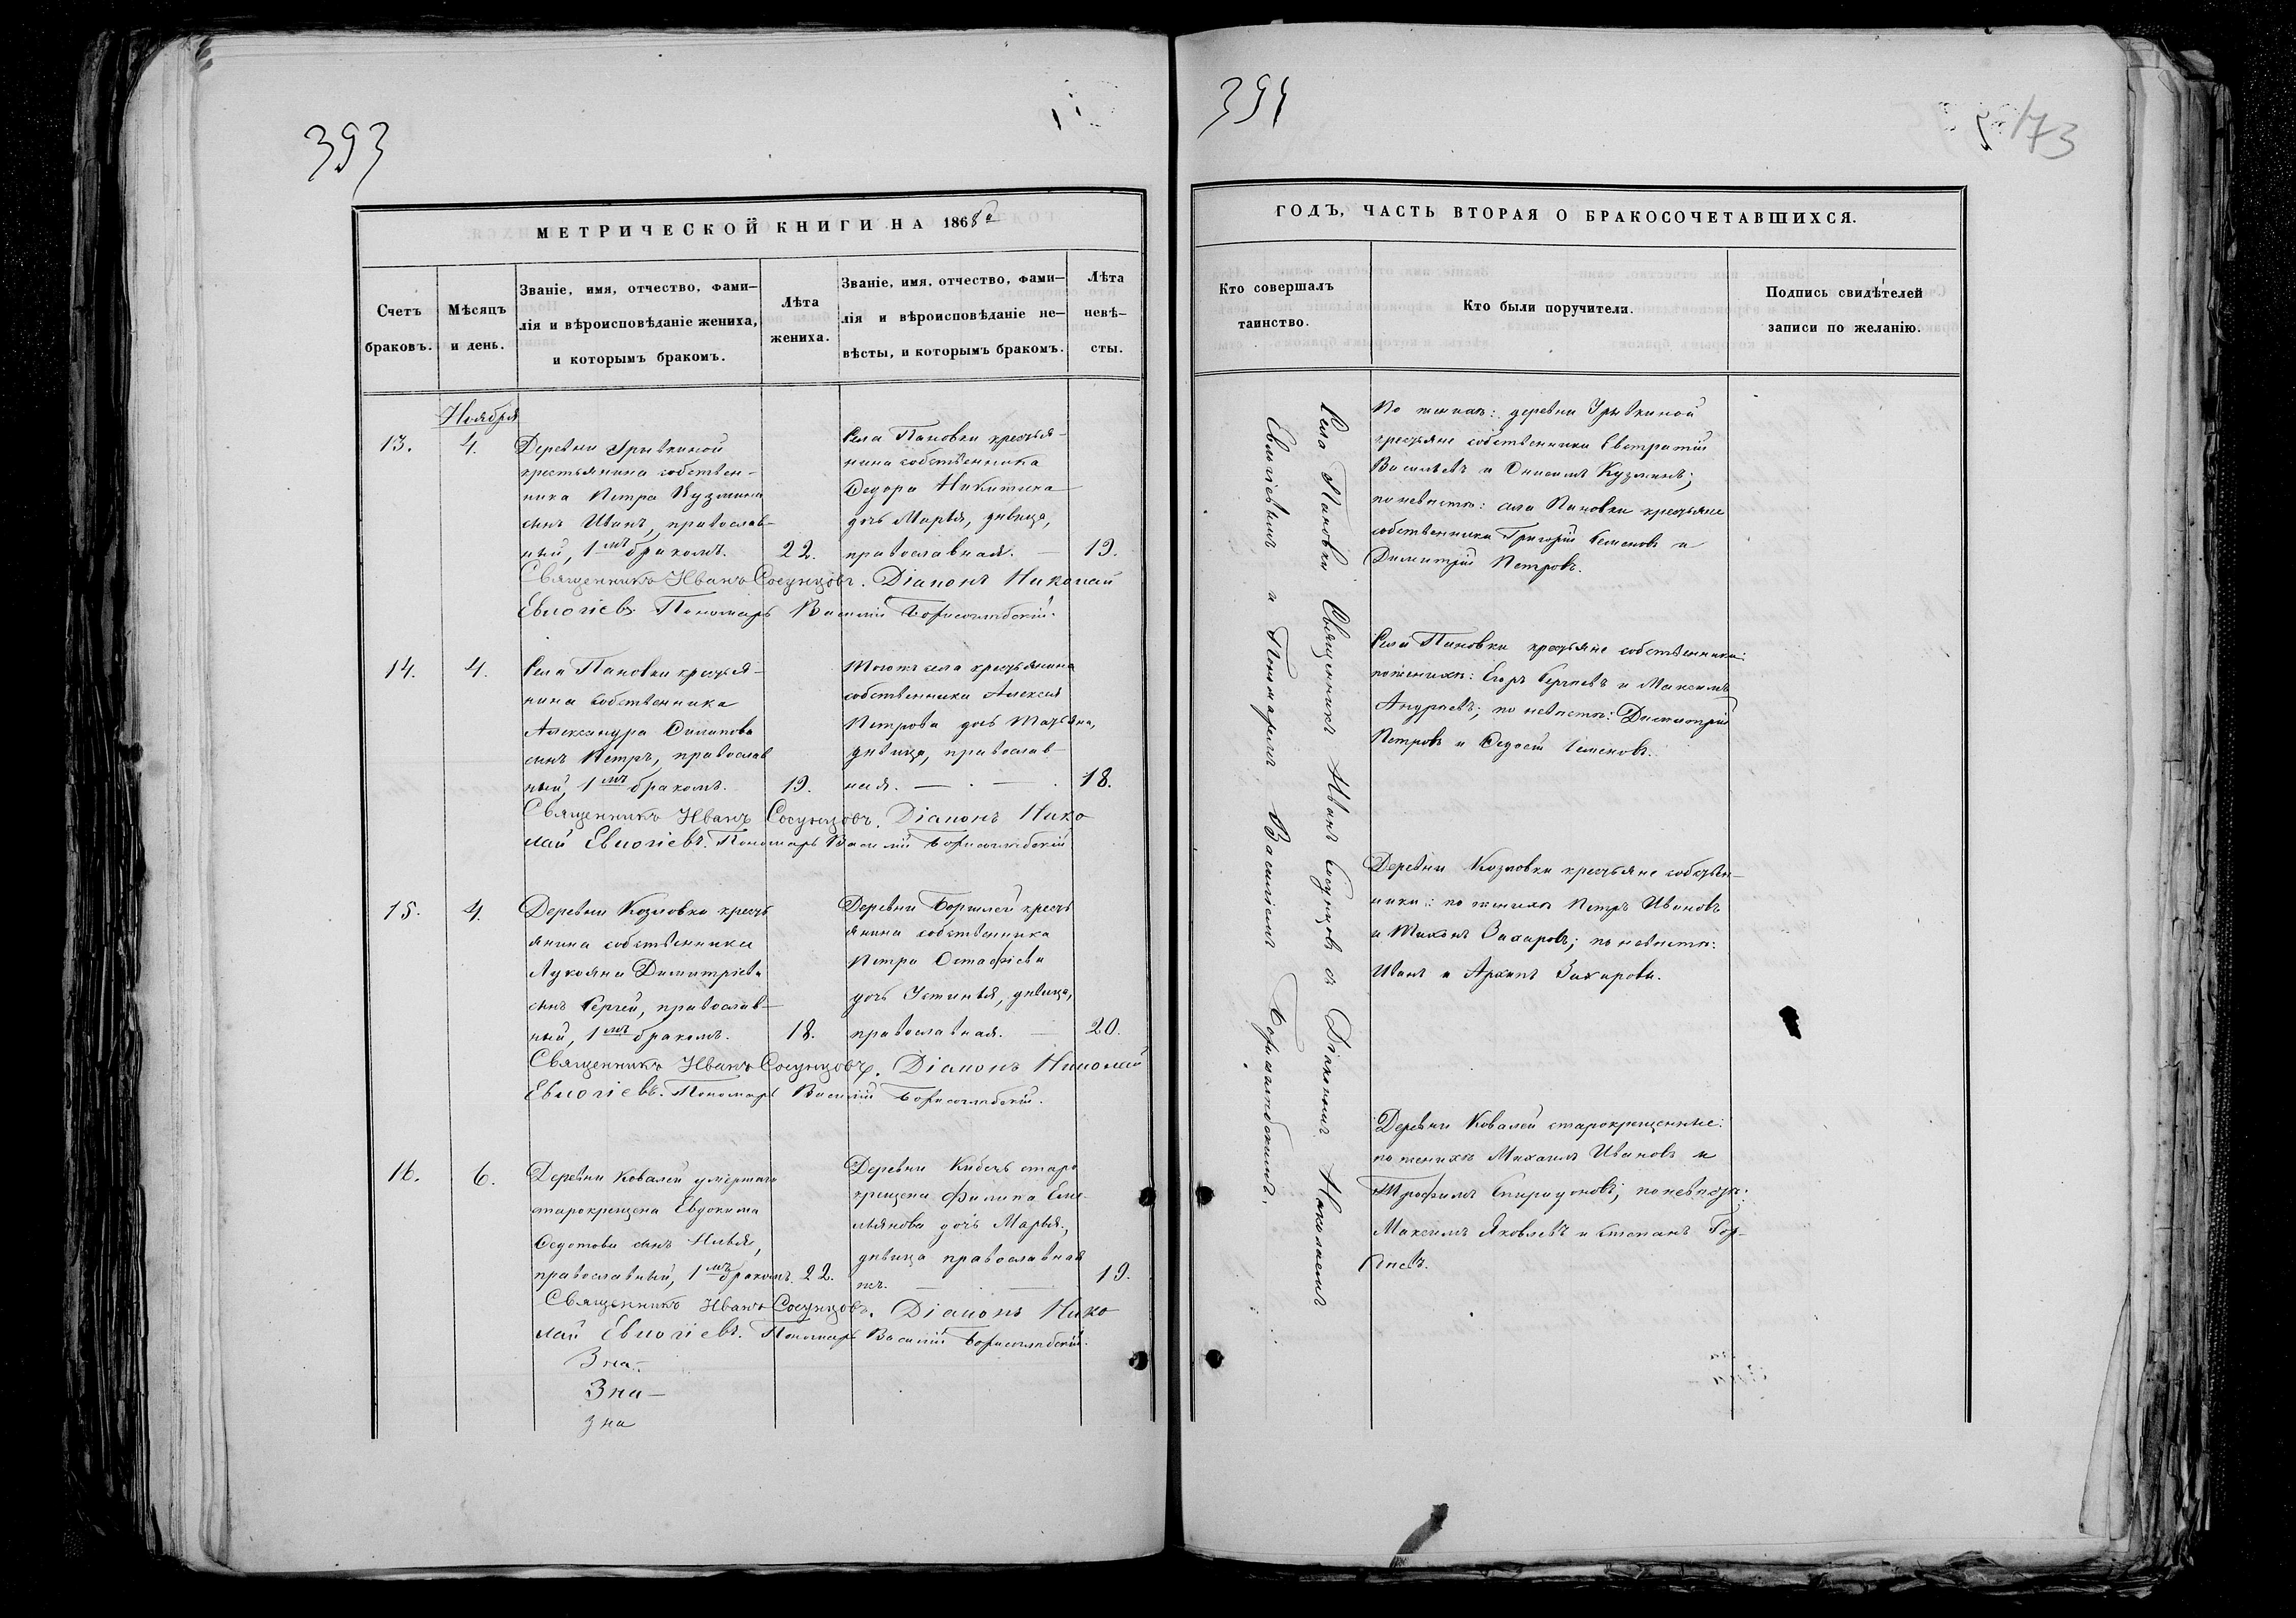 393
МЕТРИЧЕСКОЙ КНИГИ НА 1868й
Счетъ
браковъ.
Мѣсяцъ
и день.
Званіе, имя, отчество, фами-
лія и вѣроисповѣданіе жениха,
и которымъ бракомъ.
Лѣта
жениха.
Званіе, имя, отчество, фами-
лія и вѣроисповѣданіе не-
вѣсты, и которымъ бракомъ.
Лѣта
невѣ-
сты.
Ноября
13. 4.
Деревни Урывкиной
крестьянина собствен-
ника Петра Кузмина
сынъ Иванъ, православ-
ный, 1мъ бракомъ. 22.
Села Пановки кресть-
янина собственника
Ѳедора Никитина
дочь Марья, дѣвица,
православная. — 19.
Священникъ Иванъ Сосунцовъ. Діаконъ Николай
Евлогіевъ. Пономарь Василій Борисоглѣбскій.
14. 4.
Села Пановки кресть-
янина собственника
Александра Филипова
сынъ Петръ, православ
ный, 1мъ бракомъ. 19.
Тогоже села крестьянина
собственника Алексея
Петрова дочь Татьяна,
дѣвица, православ-
ная. — 18.
Священникъ Иванъ Сосунцовъ. Діаконъ Нико
лай Евлогіевъ. Пономарь Василій Борисоглѣбскій
15. 4.
Деревни Козловки кресть
янина собственника
Лукояна Димитріева
сынъ Сергей, православ-
ный, 1мъ бракомъ. 18.
Деревни кресть
янина собственника
Петра Остафіева
дочь Устинья, дѣвица,
православная. — 20.
Священникъ Иванъ Сосунцовъ. Діаконъ Николай
Евлогіевъ. Пономарь Василій Борисоглѣбскій.
16. 6.
Деревни Ковалей умершаго
старокрещена Евдокима
Ѳедотова сынъ Илья,
православный, 1мъ бракомъ. 22.
Деревни старо
крещена Филипа Еме-
льянова дочь Марья,
дѣвица православная
19.
Священникъ Иванъ Сосунцовъ. Діаконъ Нико
лай Евлогіевъ. Пономарь Василій Борисоглѣбскій.
394
173
ГОДЪ, ЧАСТЬ ВТОРАЯ О БРАКОСОЧЕТАВШИХСЯ.
Кто совершалъ
таинство.
Кто были поручители.
Подпись свидѣтелей
записи по желанію.
Села Пановки Священникъ Иванъ Сосунцовъ съ Діакономъ Николаемъ
Евлогіевымъ и Пономаремъ Василіемъ Борисоглѣбскимъ.
По женихѣ: деревни Урывкиной
крестьяне собственники Евстратій
Васильевъ и Онисимъ Кузминъ;
по невѣстѣ: села Пановки крестьяне
собственники Григорій Семеновъ и
Димитрій Петровъ.
Села Пановки крестьяне собственники:
по женихѣ: Егоръ Сергѣевъ и Максимъ
Андреевъ; по невѣстѣ: Димитрій
Петровъ и Ѳедосей Семеновъ.
Деревни Козловки крестьяне собствен-
ники: по женихѣ Петръ Ивановъ
и Тихонъ Захаровъ; по невѣстѣ:
Иванъ и Архипъ Захаровы.
Деревни Ковалей старокрещенные:
по женихѣ Михаилъ Ивановъ и
Трофимъ Спиридоновъ; по невѣстѣ:
Максимъ Яковлевъ и Степанъ Гор-
дѣевъ.